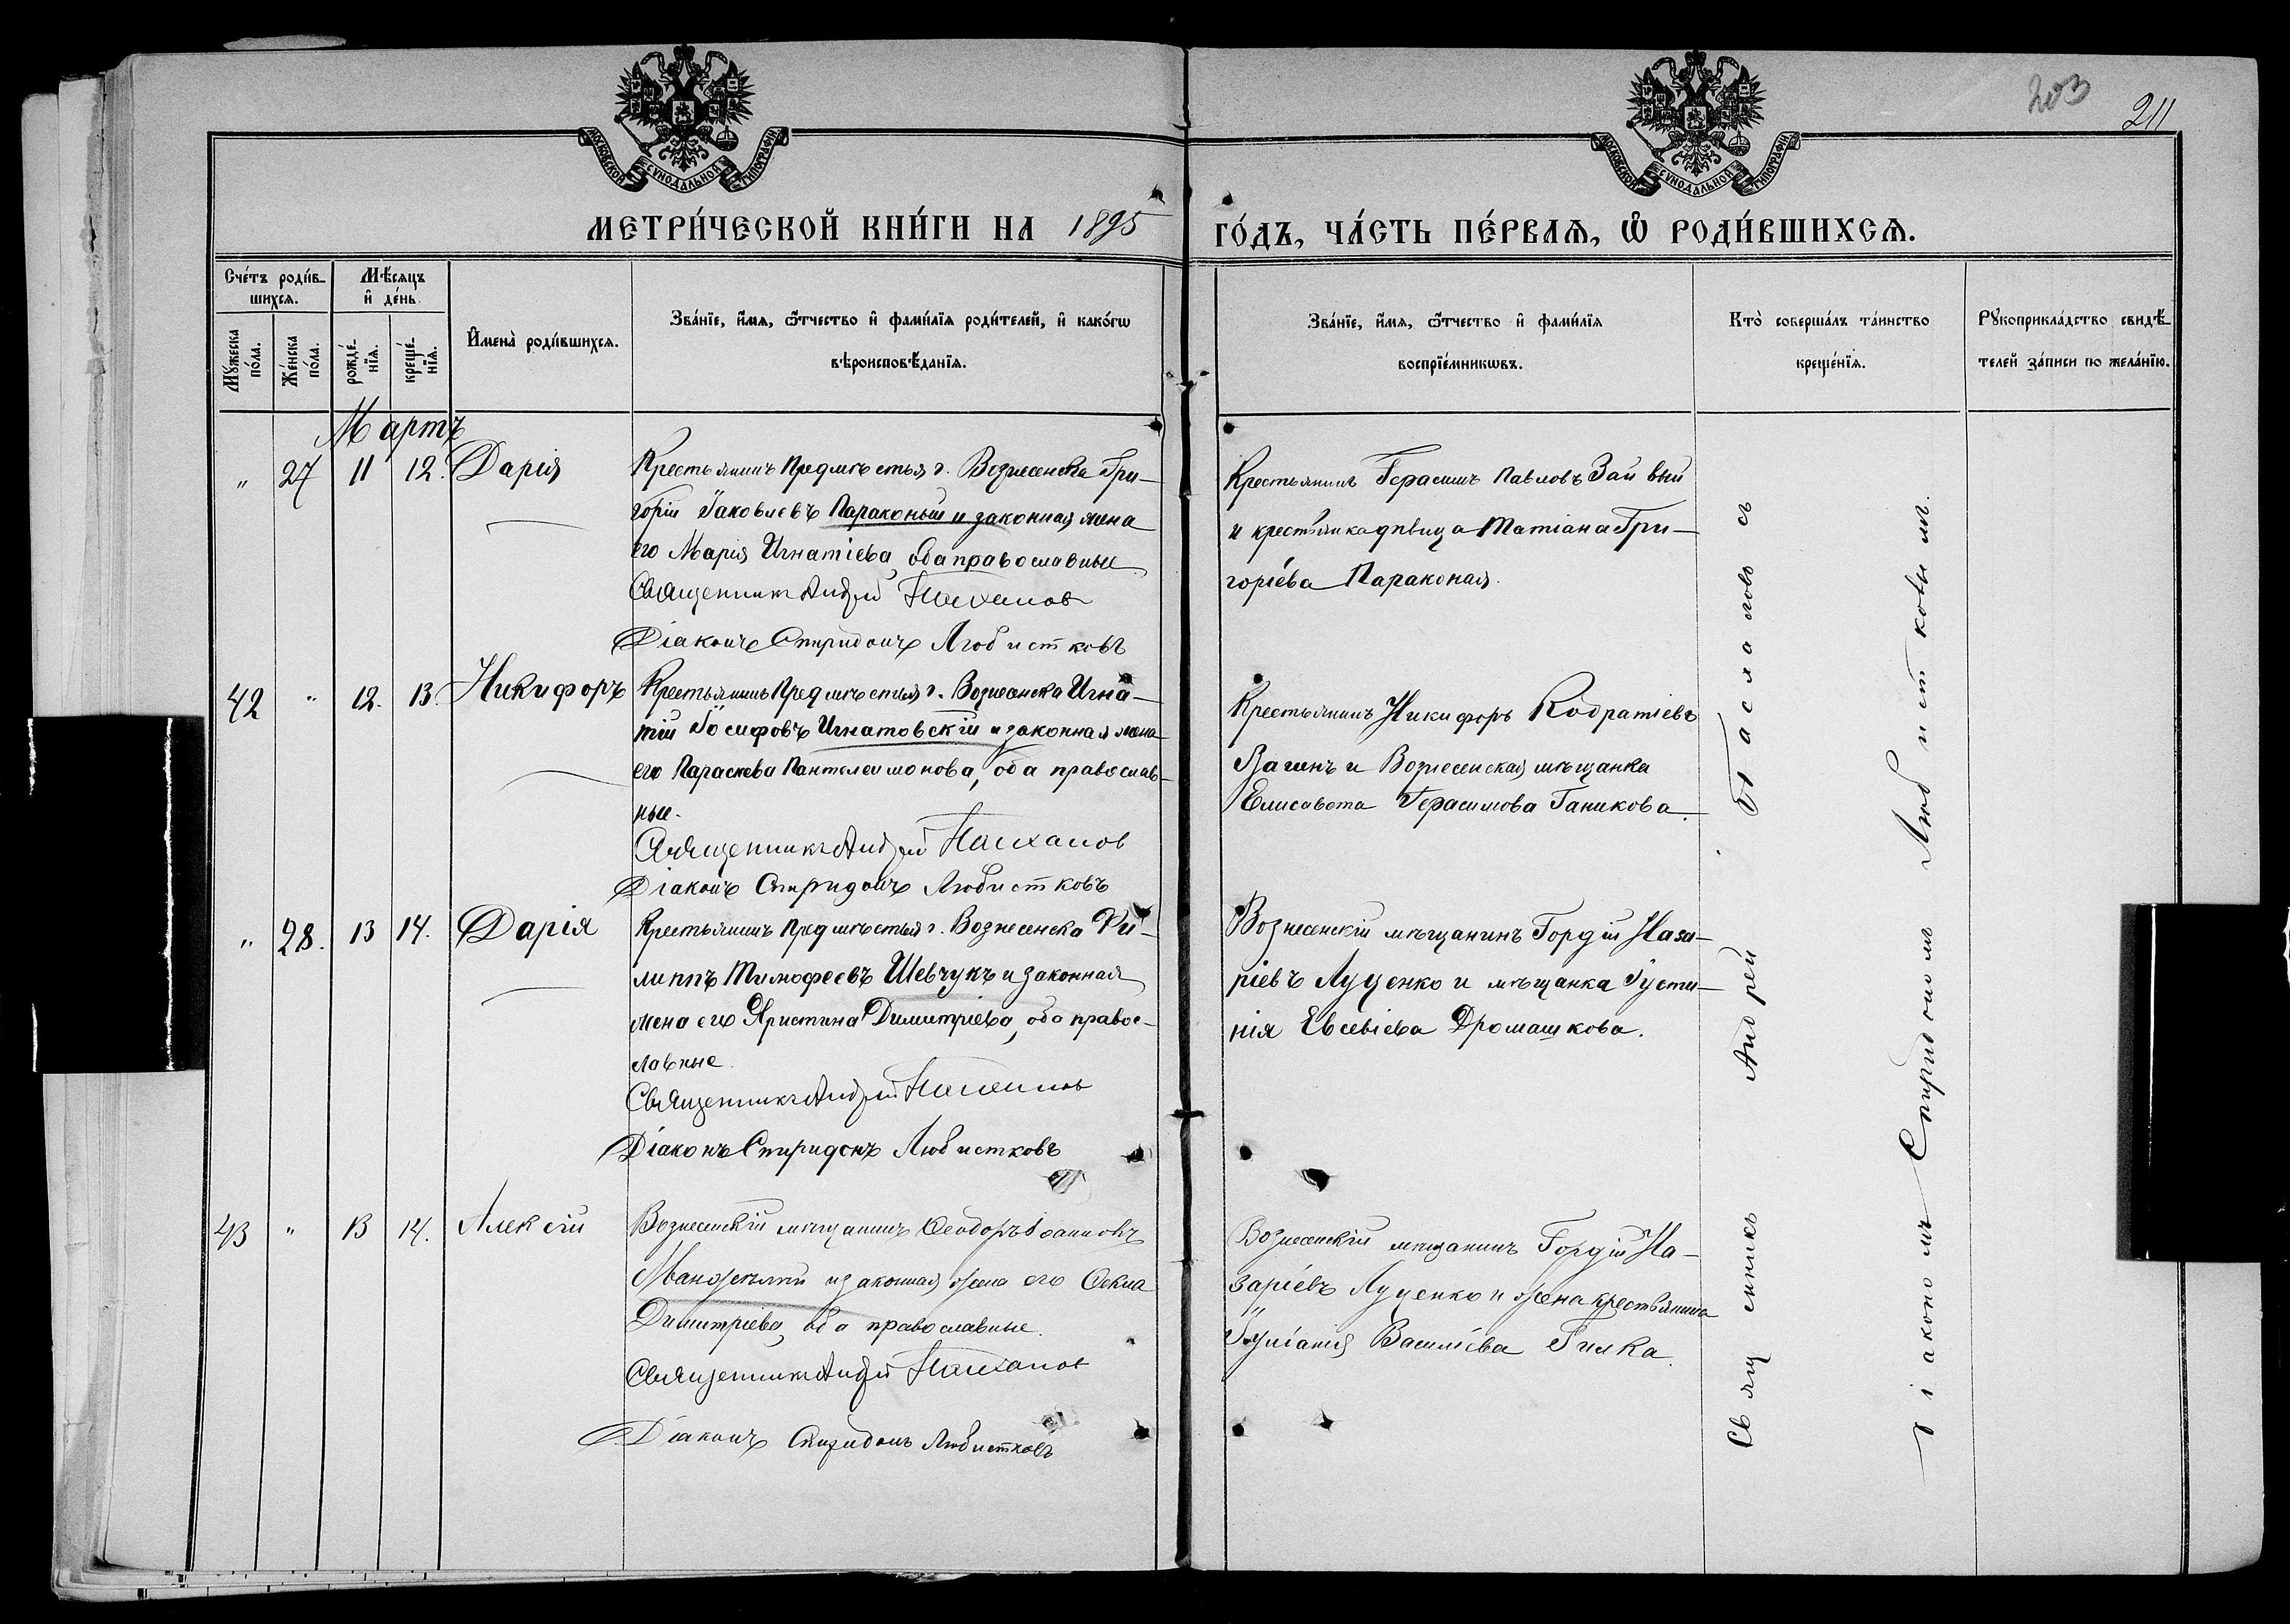 203
211
МОСКОВСКОЙ СѴНОДАЛЬНОЙ ТИПОГРАФІИ
МОСКОВСКОЙ СѴНОДАЛЬНОЙ ТИПОГРАФІИ
МЕТРИ́ЧЕСКОЙ КНИ́ГИ НА 1895 ГО́ДЪ, ЧА́СТЬ ПЕ́РВАѦ, Ѽ РОДИ́ВШИХСѦ.
Счéтъ роди́в-
шихсѧ.
Мꙋ́жеска
по́ла.
Же́нска
по́ла.
Мѣ́сѧцъ
и҆ де́нь
рожде́-
нїѧ.
креще́-
нїѧ.
И҆мена̀ роди́вшихсѧ.
Зва́нїе, и҆́мѧ, ѻ҆́тчество и҆ фами́лїѧ роди́телей, и҆ како́гѡ
вѣроисповѣ́данїѧ.
Зва́нїе, и҆́мѧ, ѻ҆́тчество и҆ фами́лїѧ
воспрїе́мникѡвъ.
Кто̀ соверша́лъ та́инство
креще́нїѧ.
Рꙋкоприкла́дство свидѣ́-
телей за́писи по жела́нїю.
Мартъ
" 27 11 12. Дарія
Крестьянинъ Предмѣстья г. Вознесенска Гри-
горій Іаковлевъ Параконый и законная жена
его Марія Игнатіева, оба православные
Священникъ Андрей
Діаконъ Спиридонъ Любистковъ
Крестьянинъ Герасимъ Павловъ
и крестьянка дѣвица Татіана Гри-
горіева Параконая.
42 " 12. 13. Никифоръ
Крестьянинъ Предмѣстья г. Вознесенска Игна-
тій Іосифовъ Игнатовскій и законная жена
его Параскева Пантелеимонова, оба православ-
ные.
Священникъ Андрей
Діаконъ Спиридонъ Любистковъ
Крестьянинъ Никифоръ Кодратіевъ
и Вознесенская мѣщанка
Елисавета Герасимова Ганикова.
" 28. 13 14. Дарія
Крестьянинъ Предмѣстья г. Вознесенска Фи-
липпъ Тимофеевъ Шевчукъ и законная
жена его Христина Димитріева, оба правос-
лавные
Священникъ Андрей
Діаконъ Спиридонъ Любистковъ
Вознесенскій мѣщанинъ Гордій Наза-
ріевъ Луценко и мѣщанка Іусти-
нія Евсевіева Дромашкова.
43 " 13 14. Алексій
Вознесенскій мѣщанинъ Ѳеодоръ Іоанновъ
и законная жена его Ѳекла
Димитріева, оба православные.
Священникъ Андрей
Діаконъ Спиридонъ Любистковъ
Вознесенскій мѣщанинъ Гордій На-
заріевъ Луценко и жена крестьянина
Іуліанія Василіева Гилка.
Священникъ Андрей съ
діакономъ Спиридономъ Любистковымъ.